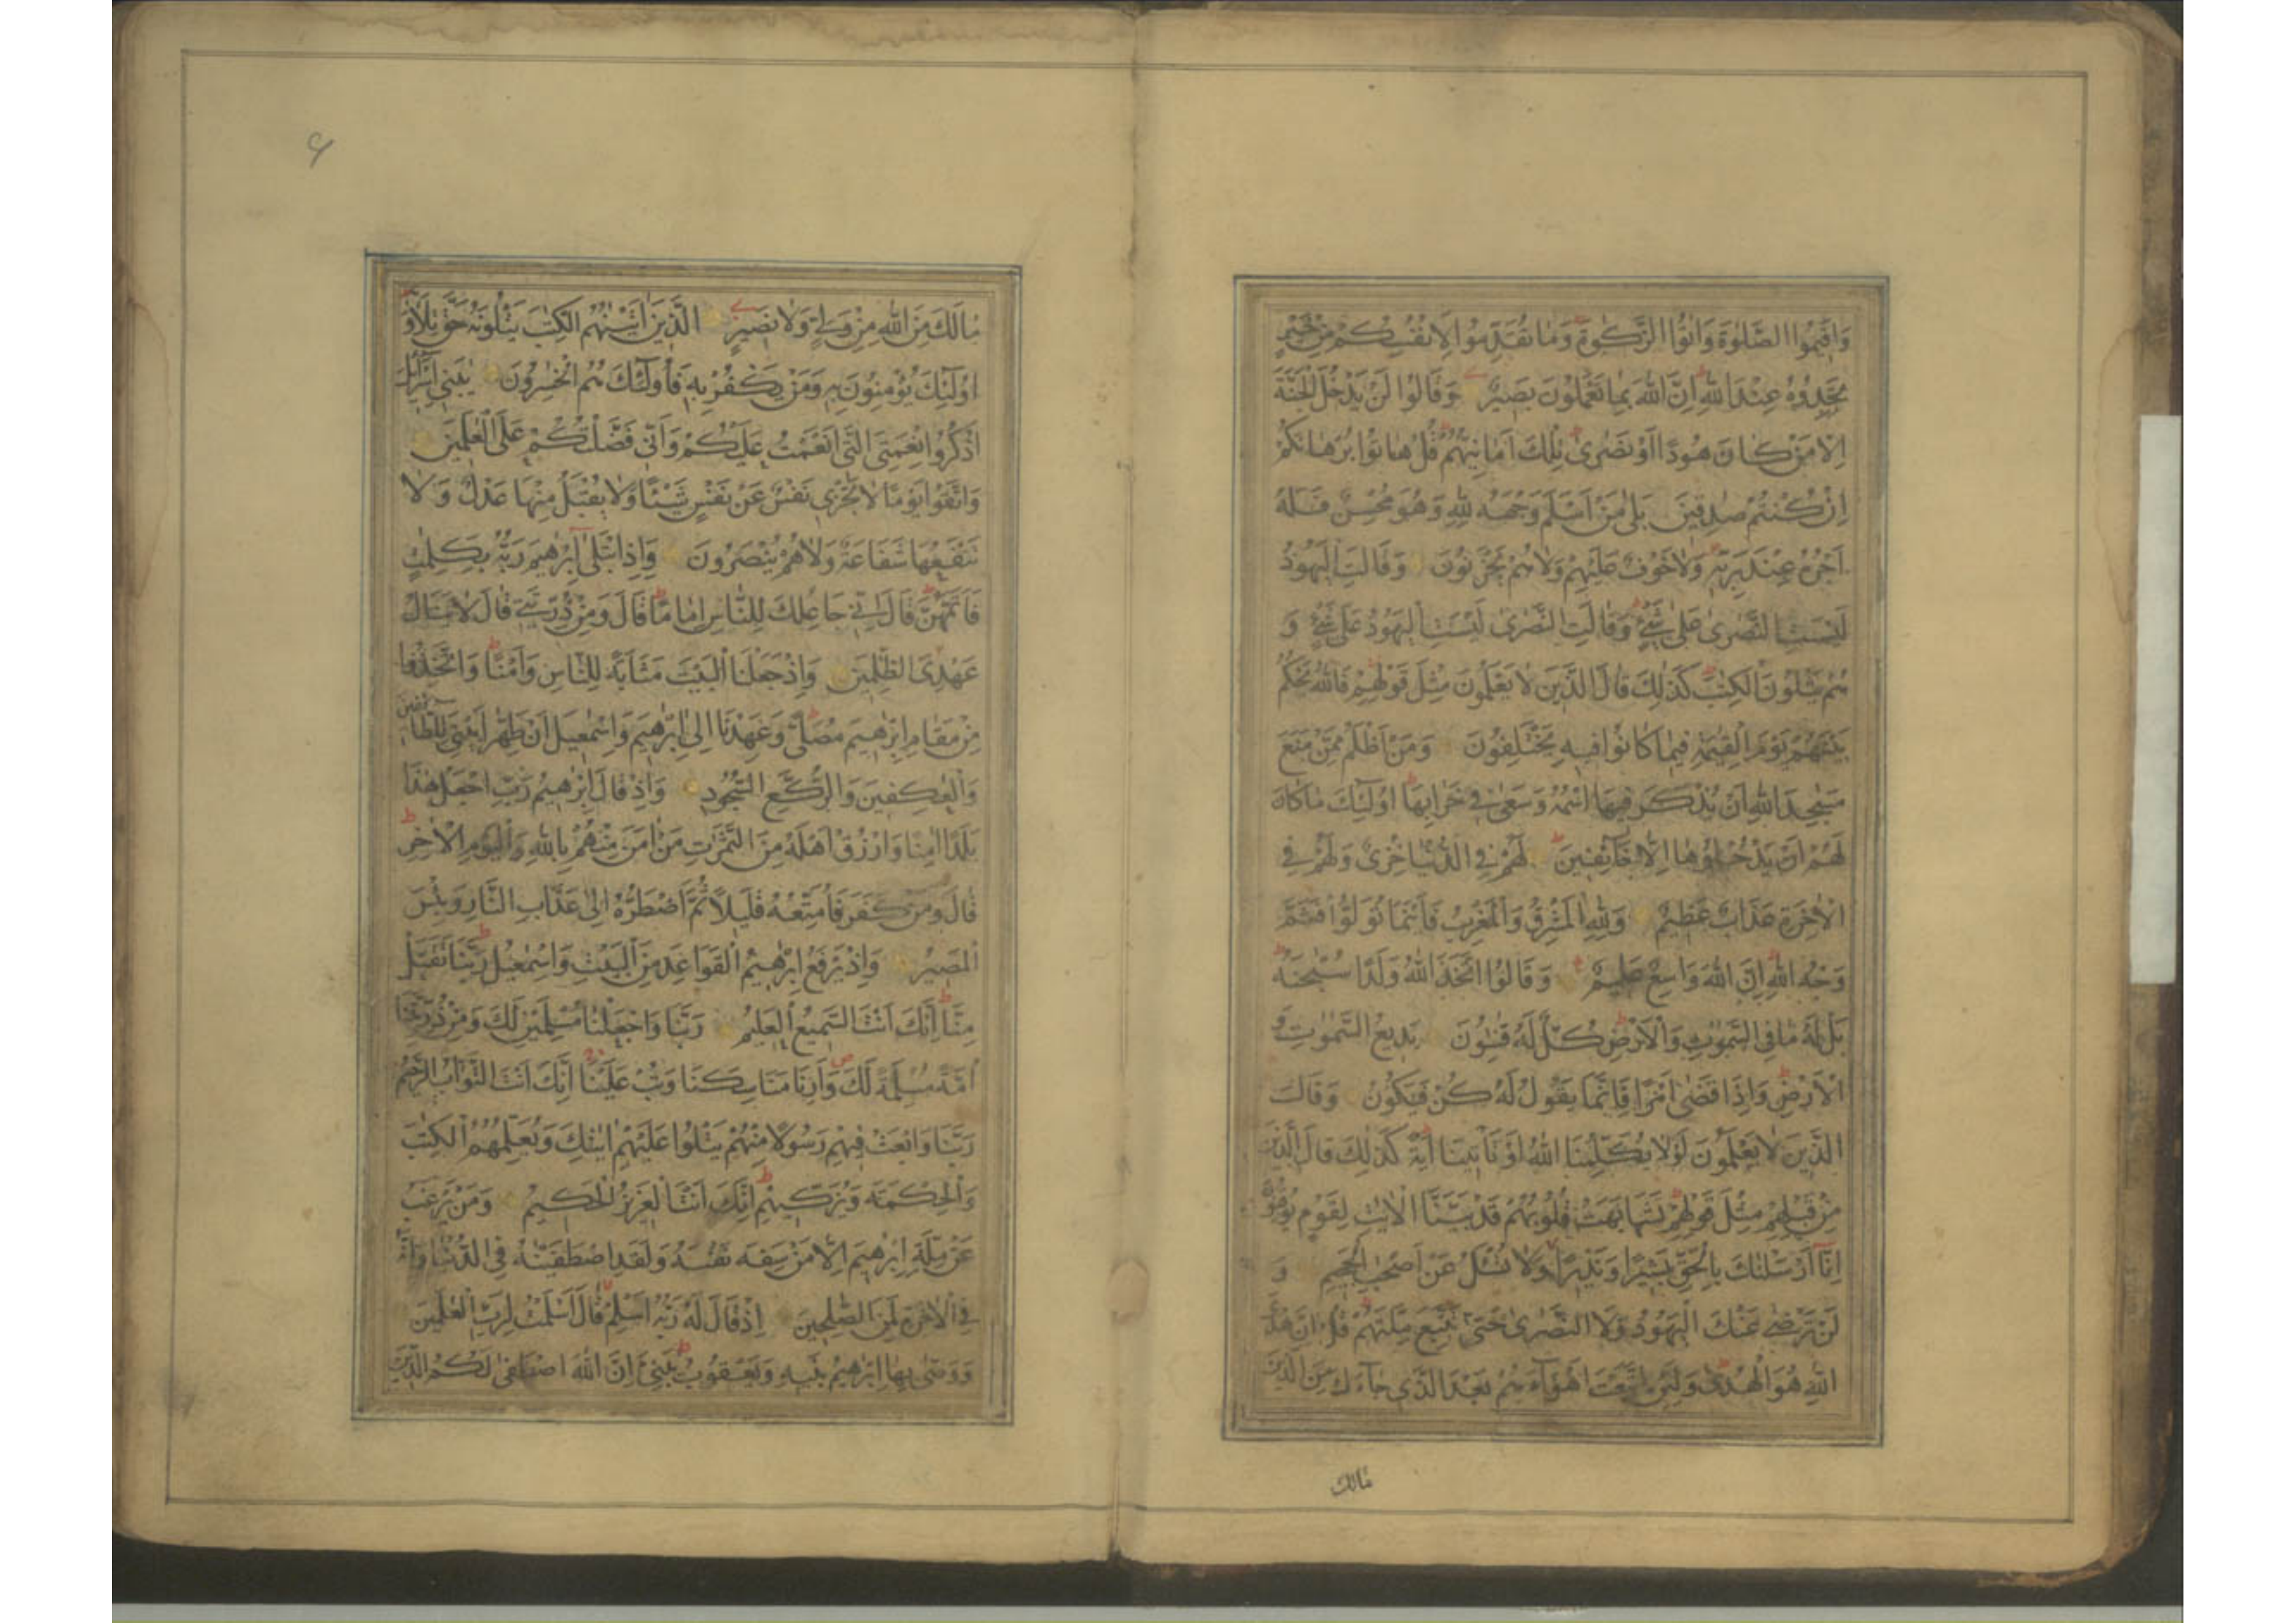 وَاَقِيمُوا الصَّلٰوةَ وَاٰتُوا الزَّكٰوةَ وَمَا تُقَدِّمُوا لِاَنْفُسِكُمْ مِنْ خَيْرٍ
تَجِدُوهُ عِنْدَ اللّٰهِ اِنَّ اللّٰهَ بِمَا تَعْمَلُونَ بَصِيرٌ وَقَالُوا لَنْ يَدْخُلَ الْجَنَّةَ
اِلَّا مَنْ كَانَ هُودًا اَوْ نَصٰرٰى تِلْكَ اَمَانِيُّهُمْ قُلْ هَاتُوا بُرْهَانَكُمْ
اِنْ كُنْتُمْ صٰدِقِينَ بَلٰى مَنْ اَسْلَمَ وَجْهَهُ لِلّٰهِ وَهُوَ مُحْسِنٌ فَلَهُ
اَجْرُهُ عِنْدَ رَبِّهِ وَلَا خَوْفٌ عَلَيْهِمْ وَلَا هُمْ يَحْزَنُونَ وَقَالَتِ الْيَهُودُ
لَيْسَتِ النَّصٰرٰى عَلٰى شَيْءٍ وَقَالَتِ النَّصٰرٰى لَيْسَتِ الْيَهُودُ عَلٰى شَيْءٍ وَ
هُمْ يَتْلُونَ الْكِتٰبَ كَذٰلِكَ قَالَ الَّذِينَ لَا يَعْلَمُونَ مِثْلَ قَوْلِهِمْ فَاللّٰهُ يَحْكُمُ
بَيْنَهُمْ يَوْمَ الْقِيٰمَةِ فِيمَا كَانُوا فِيهِ يَخْتَلِفُونَ وَمَنْ اَظْلَمُ مِمَّنْ مَنَعَ
مَسٰجِدَ اللّٰهِ اَنْ يُذْكَرَ فِيهَا اسْمُهُ وَسَعٰى فِي خَرَابِهَا اُولٰٓئِكَ مَا كَانَ
لَهُمْ اَنْ يَدْخُلُوهَا اِلَّا خَآئِفِينَ لَهُمْ فِي الدُّنْيَا خِزْيٌ وَلَهُمْ فِي
الْاٰخِرَةِ عَذَابٌ عَظِيمٌ وَلِلّٰهِ الْمَشْرِقُ وَالْمَغْرِبُ فَاَيْنَمَا تُوَلُّوا فَثَمَّ
وَجْهُ اللّٰهِ اِنَّ اللّٰهَ وَاسِعٌ عَلِيمٌ وَقَالُوا اتَّخَذَ اللّٰهُ وَلَدًا سُبْحٰنَهُ
بَلْ لَهُ مَا فِي السَّمٰوٰتِ وَالْاَرْضِ كُلٌّ لَهُ قٰنِتُونَ بَدِيعُ السَّمٰوٰتِ وَ
الْاَرْضِ وَاِذَا قَضٰى اَمْرًا فَاِنَّمَا يَقُولُ لَهُ كُنْ فَيَكُونُ وَقَالَ
الَّذِينَ لَا يَعْلَمُونَ لَوْلَا يُكَلِّمُنَا اللّٰهُ اَوْ تَأْتِينَا اٰيَةٌ كَذٰلِكَ قَالَ الَّذِينَ
مِنْ قَبْلِهِمْ مِثْلَ قَوْلِهِمْ تَشَابَهَتْ قُلُوبُهُمْ قَدْ بَيَّنَّا الْاٰيٰتِ لِقَوْمٍ يُوقِنُونَ
اِنَّا اَرْسَلْنٰكَ بِالْحَقِّ بَشِيرًا وَنَذِيرًا وَلَا تُسْئَلُ عَنْ اَصْحٰبِ الْجَحِيمِ وَ
لَنْ تَرْضٰى عَنْكَ الْيَهُودُ وَلَا النَّصٰرٰى حَتّٰى تَتَّبِعَ مِلَّتَهُمْ قُلْ اِنَّ هُدَى
اللّٰهِ هُوَ الْهُدٰى وَلَئِنِ اتَّبَعْتَ اَهْوَآءَهُمْ بَعْدَ الَّذِي جَآءَكَ مِنَ الَّذِينَ
مَالَكَ
۶
مَا لَكَ مِنَ اللّٰهِ مِنْ وَلِيٍّ وَلَا نَصِيرٍ الَّذِينَ اٰتَيْنٰهُمُ الْكِتٰبَ يَتْلُونَهُ حَقَّ تِلَاوَتِهِ
اُولٰٓئِكَ يُؤْمِنُونَ بِهِ وَمَنْ يَكْفُرْ بِهِ فَاُولٰٓئِكَ هُمُ الْخٰسِرُونَ يٰبَنِي اِسْرَآئِيلَ
اذْكُرُوا نِعْمَتِيَ الَّتِي اَنْعَمْتُ عَلَيْكُمْ وَاَنِّي فَضَّلْتُكُمْ عَلَى الْعٰلَمِينَ
وَاتَّقُوا يَوْمًا لَا تَجْزِي نَفْسٌ عَنْ نَفْسٍ شَيْئًا وَلَا يُقْبَلُ مِنْهَا عَدْلٌ وَلَا
تَنْفَعُهَا شَفَاعَةٌ وَلَا هُمْ يُنْصَرُونَ وَاِذِ ابْتَلٰى اِبْرٰهِيمَ رَبُّهُ بِكَلِمٰتٍ
فَاَتَمَّهُنَّ قَالَ اِنِّي جَاعِلُكَ لِلنَّاسِ اِمَامًا قَالَ وَمِنْ ذُرِّيَّتِي قَالَ لَا يَنَالُ
عَهْدِي الظّٰلِمِينَ وَاِذْ جَعَلْنَا الْبَيْتَ مَثَابَةً لِلنَّاسِ وَاَمْنًا وَاتَّخِذُوا
مِنْ مَقَامِ اِبْرٰهِيمَ مُصَلًّى وَعَهِدْنَا اِلٰى اِبْرٰهِيمَ وَاِسْمٰعِيلَ اَنْ طَهِّرَا بَيْتِيَ لِلطَّآئِفِينَ
وَالْعٰكِفِينَ وَالرُّكَّعِ السُّجُودِ وَاِذْ قَالَ اِبْرٰهِيمُ رَبِّ اجْعَلْ هٰذَا
بَلَدًا اٰمِنًا وَارْزُقْ اَهْلَهُ مِنَ الثَّمَرٰتِ مَنْ اٰمَنَ مِنْهُمْ بِاللّٰهِ وَالْيَوْمِ الْاٰخِرِ
قَالَ وَمَنْ كَفَرَ فَاُمَتِّعُهُ قَلِيلًا ثُمَّ اَضْطَرُّهُ اِلٰى عَذَابِ النَّارِ وَبِئْسَ
الْمَصِيرُ وَاِذْ يَرْفَعُ اِبْرٰهِيمُ الْقَوَاعِدَ مِنَ الْبَيْتِ وَاِسْمٰعِيلُ رَبَّنَا تَقَبَّلْ
مِنَّا اِنَّكَ اَنْتَ السَّمِيعُ الْعَلِيمُ رَبَّنَا وَاجْعَلْنَا مُسْلِمَيْنِ لَكَ وَمِنْ ذُرِّيَّتِنَا
اُمَّةً مُسْلِمَةً لَكَ وَاَرِنَا مَنَاسِكَنَا وَتُبْ عَلَيْنَا اِنَّكَ اَنْتَ التَّوَّابُ الرَّحِيمُ
رَبَّنَا وَابْعَثْ فِيهِمْ رَسُولًا مِنْهُمْ يَتْلُوا عَلَيْهِمْ اٰيٰتِكَ وَيُعَلِّمُهُمُ الْكِتٰبَ
وَالْحِكْمَةَ وَيُزَكِّيهِمْ اِنَّكَ اَنْتَ الْعَزِيزُ الْحَكِيمُ وَمَنْ يَرْغَبُ
عَنْ مِلَّةِ اِبْرٰهِيمَ اِلَّا مَنْ سَفِهَ نَفْسَهُ وَلَقَدِ اصْطَفَيْنٰهُ فِي الدُّنْيَا وَاِنَّهُ
فِي الْاٰخِرَةِ لَمِنَ الصّٰلِحِينَ اِذْ قَالَ لَهُ رَبُّهُ اَسْلِمْ قَالَ اَسْلَمْتُ لِرَبِّ الْعٰلَمِينَ
وَوَصّٰى بِهَا اِبْرٰهِيمُ بَنِيهِ وَيَعْقُوبُ يٰبَنِيَّ اِنَّ اللّٰهَ اصْطَفٰى لَكُمُ الدِّينَ